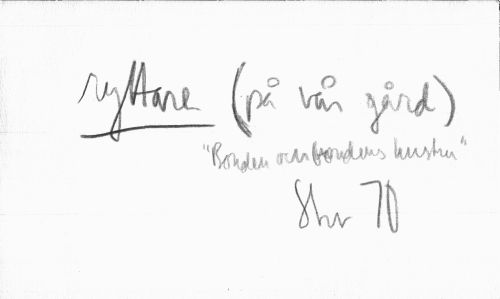 ryttare (på vår gård)
"Bonden och bondens hustru"
Skr 70